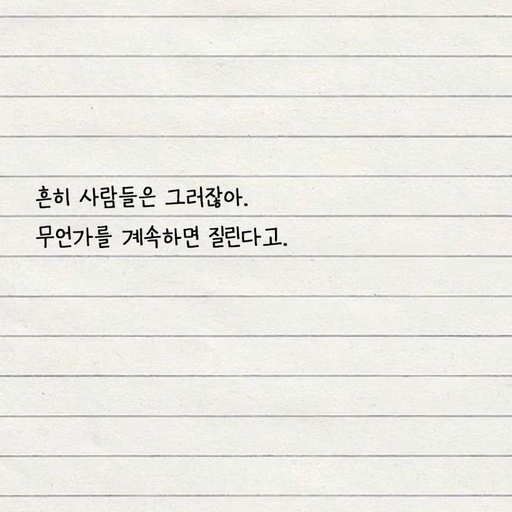 흔히 사람들은 그러잖아.
무언가를 계속하면 질린다고.